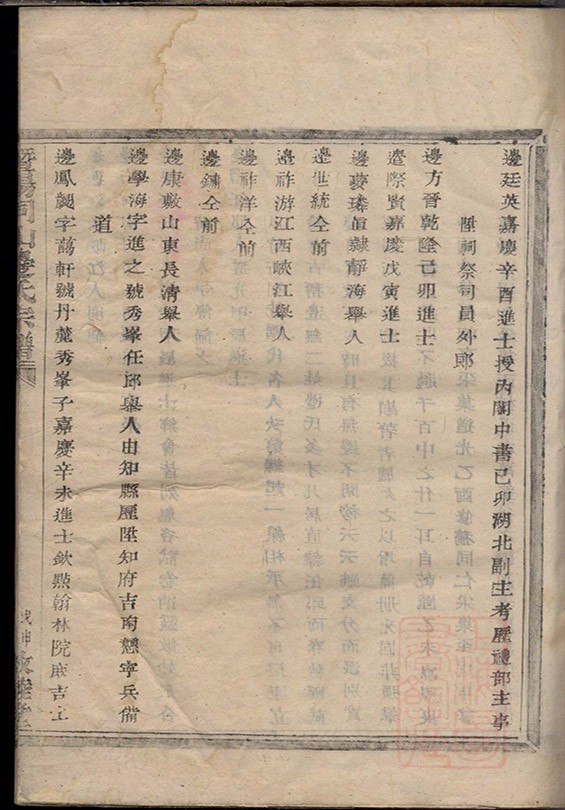 邊廷英嘉慶辛酉進士授內閣中書己卯湖北副主考歷禮部主事
陞祠祭司員外郎
邊方晉乾隆己卯進士
邊際賢嘉慶戊寅進士
邊夢璂直隸靜海舉人
邊世統仝前
邊祚游江西峽江舉人
邊祚洋仝前
邊鏞仝前
邊康敷山東長清舉人
邊學海字進之號秀峯任邱舉人由知縣歷陞知府吉南懸寧兵備
道
邊鳳翽字萬軒號丹麓秀峯子嘉慶辛未進士欽點翰林院庶吉士
暨陽同山邊氏宗譜
戊申